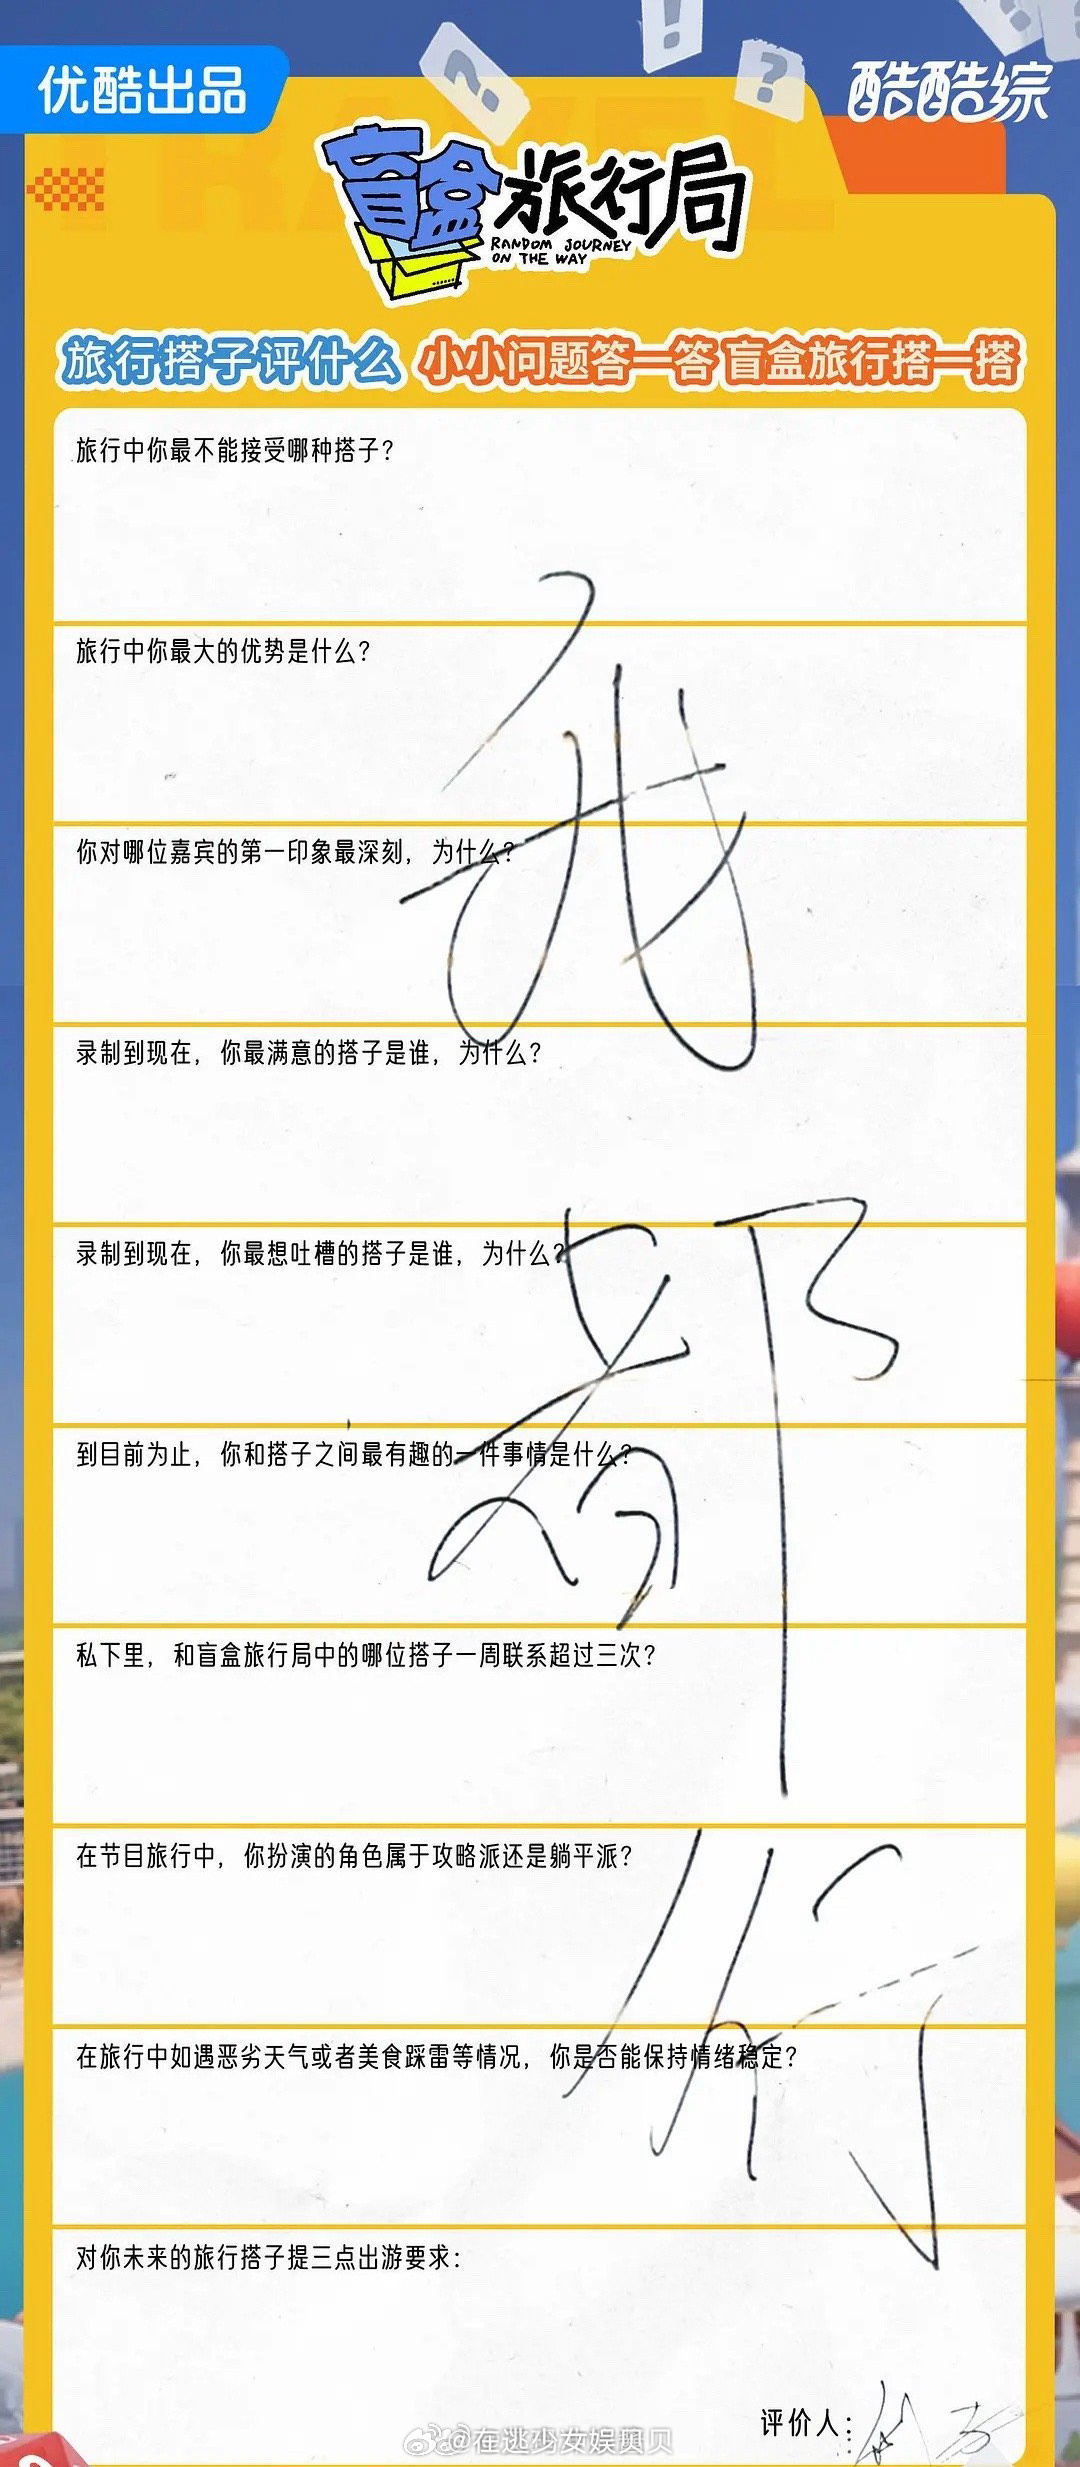 优酷出品
酷酷综
盲盒旅行局
RANDOM JOURNEY
ON THE WAY
旅行搭子评什么 小小问题答一答 盲盒旅行搭一搭
旅行中你最不能接受哪种搭子？
旅行中你最大的优势是什么？
我
你对哪位嘉宾的第一印象最深刻，为什么？
录制到现在，你最满意的搭子是谁，为什么？
录制到现在，你最想吐槽的搭子是谁，为什么？
都
到目前为止，你和搭子之间最有趣的一件事情是什么？
私下里，和盲盒旅行局中的哪位搭子一周联系超过三次？
在节目旅行中，你扮演的角色属于攻略派还是躺平派？
行
在旅行中如遇恶劣天气或者美食踩雷等情况，你是否能保持情绪稳定？
对你未来的旅行搭子提三点出游要求：
评价人：
@在逃少女娱奥贝